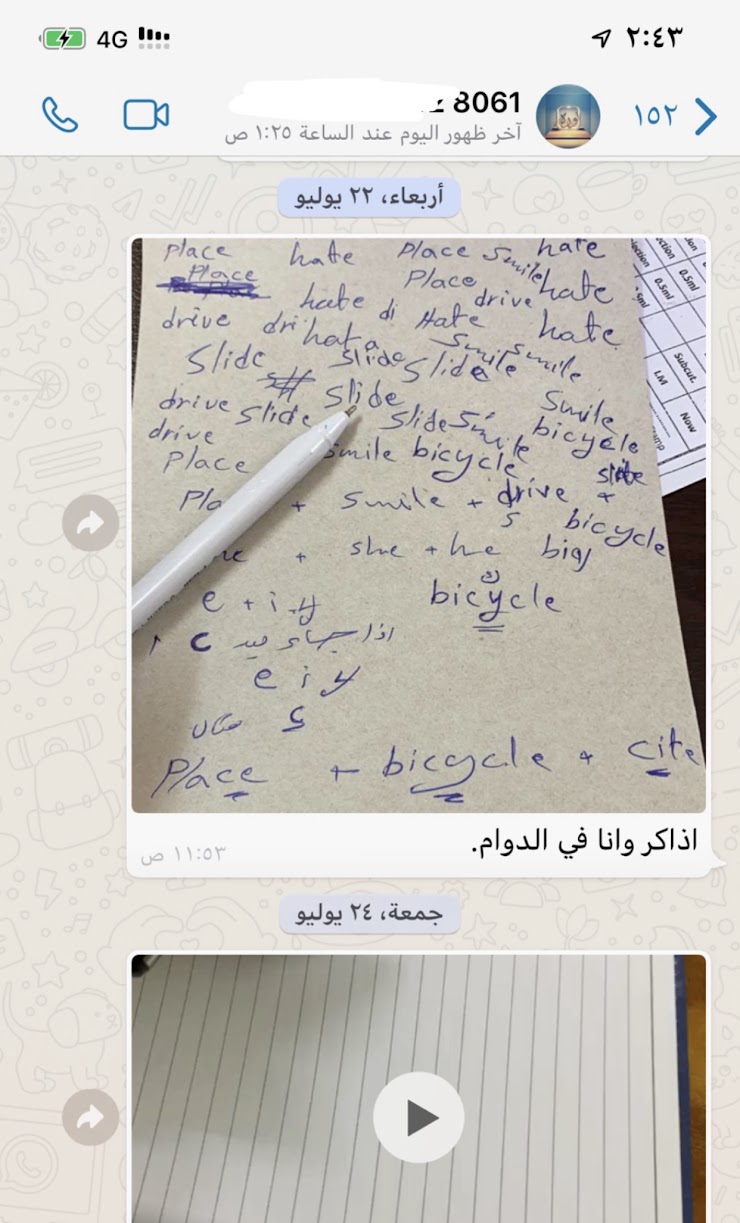 ٢:٤٣
4G
١٥٢
8061
آخر ظهور اليوم عند الساعة ١:٢٥ ص
أربعاء، ٢٢ يوليو
place hate place smile hate
Place hate Place drive hate
drive dri hat di Hate hate
Slide slide slide smile smile
drive slide slide slide smile Smile
drive smile bicycle bicycle
Place slide
Pla + smile + drive +
s bicycle
+ she + he big
e + i + y bicycle
اذا جاء بعد c
e i y
s
Place + bicycle + cite
ection
ction
0.5ml
0.5ml
5ml
Subcut.
I.M
Now
اذاكر وانا في الدوام.
١١:٥٣ ص
جمعة، ٢٤ يوليو